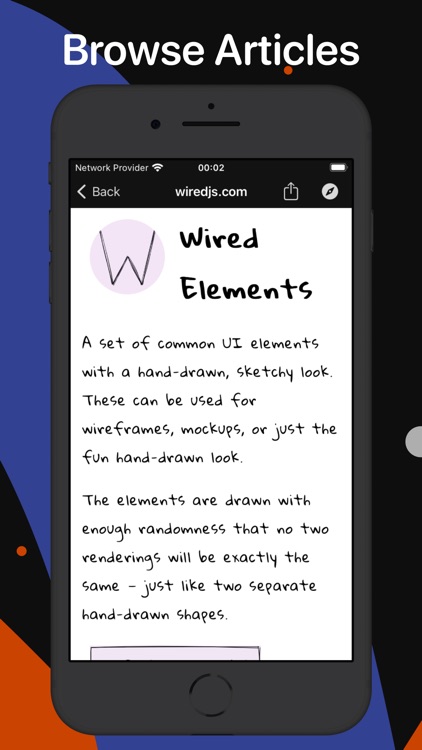 Browse Articles
Network Provider 00:02
Back wiredjs.com
W
Wired
Elements
A set of common UI elements
with a hand-drawn, sketchy look.
These can be used for
wireframes, mockups, or just the
fun hand-drawn look.
The elements are drawn with
enough randomness that no two
renderings will be exactly the
same - just like two separate
hand-drawn shapes.